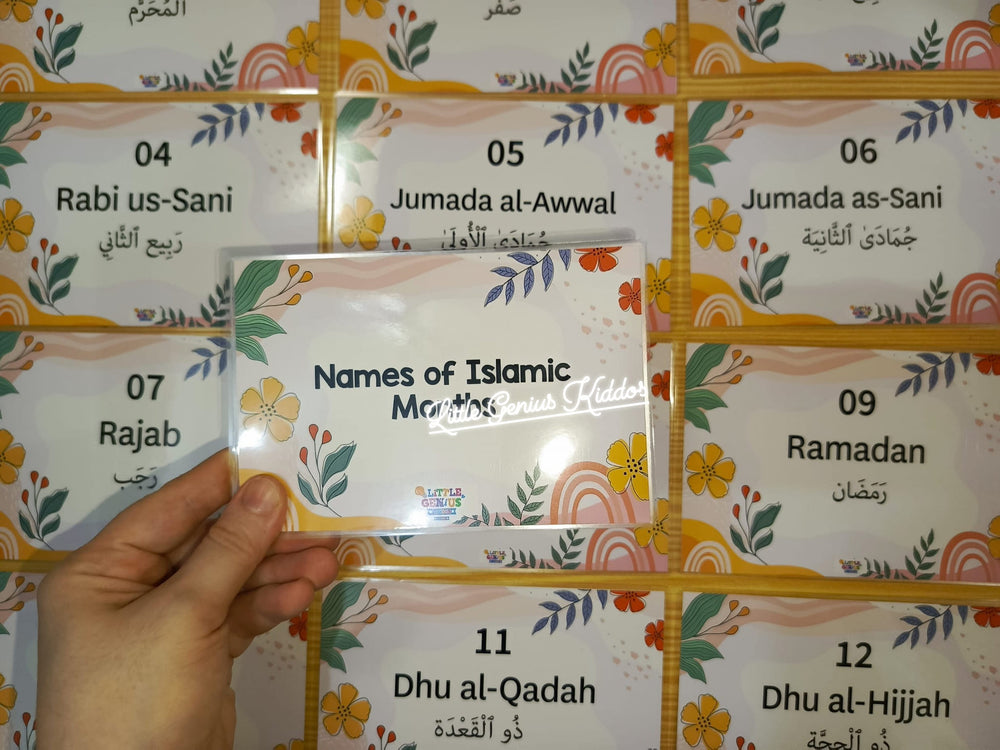 المُحَرَّم
صَفَر
04
Rabi us-Sani
رَبِيع ٱلثَّانِي
05
Jumada al-Awwal
جُمَادَىٰ ٱلْأُولَىٰ
06
Jumada as-Sani
جُمَادَىٰ ٱلثَّانِيَة
07
Rajab
رَجَب
Names of Islamic
Months
Little Genius Kiddos
LITTLE
GENIUS
09
Ramadan
رَمَضَان
11
Dhu al-Qadah
ذُو ٱلْقَعْدَة
12
Dhu al-Hijjah
ذُو ٱلْحِجَّة